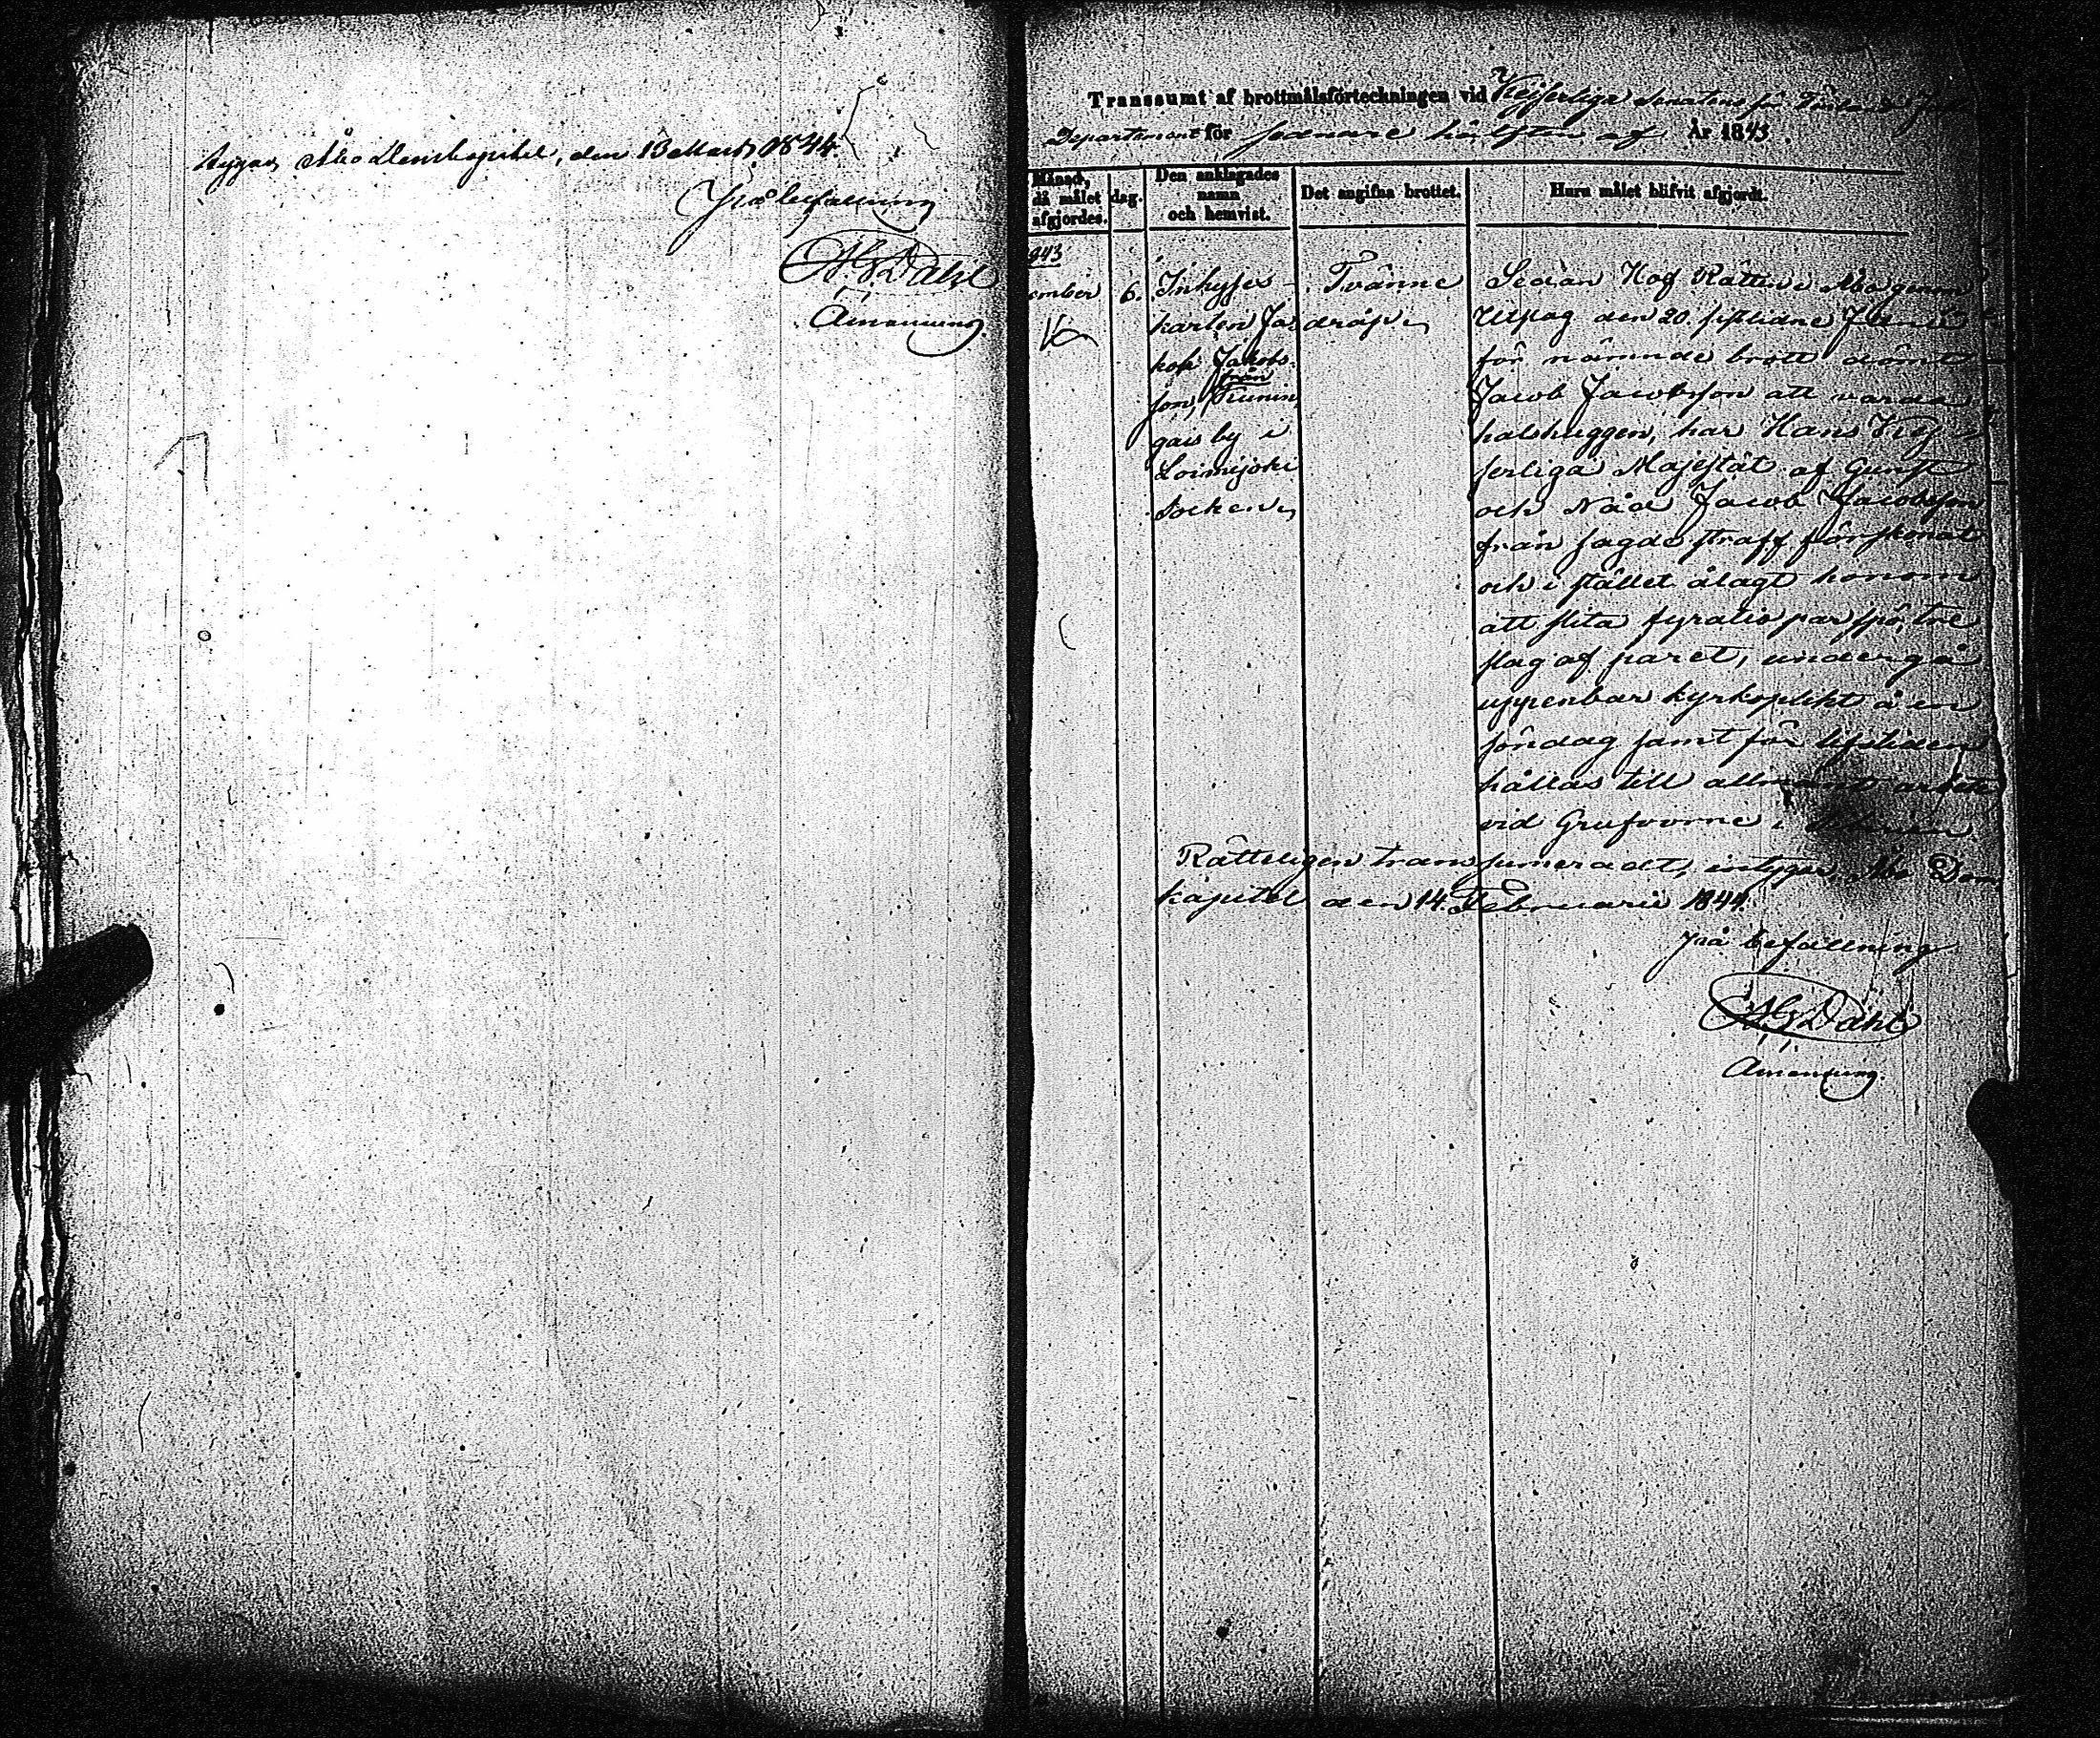 tygar, Åbo Domkapitel, den 13 Mart. 1844.
På befallning
A G Dahl
Amanuens.
Transsumt af brottmålsförteckningen vid Kejserliga Senatens för Finland Just
Departement för sednare hälften af År 1843.
Månad,
då målet
afgjordes.
dag.
Den anklagades
namn
och hemvist.
Det angifna brottet.
Huru målet blifvit afgjordt.
843
ember
6.
Inhyses
karlen Ja
kob Jakobs
son, från
gais by i
Loimijoki
Socken
Tvänne
dråp
Sedan Hof Rätten i Åbo genom
Utslag den 20. sistlidne Junii
för nämnde brott dömt
Jacob Jacobsson att varda
halshuggen, har Hans Kej
serliga Majestät af Gunst
och Nåd Jacob Jacobsson
från sagde straff förskonat
och i stället ålagt honom
att slita fyratio par spö, tre
slag af paret, undergå
uppenbar kyrkoplikt å en
söndag samt för lifstiden
hållas till allmänt arbete
vid Grufvorne i Siberien
Rätteligen transsumeradt, intygar, Åbo Dom
kapitel den 14. Februarii 1844.
På befallning
A G Dahl
Amanuens.